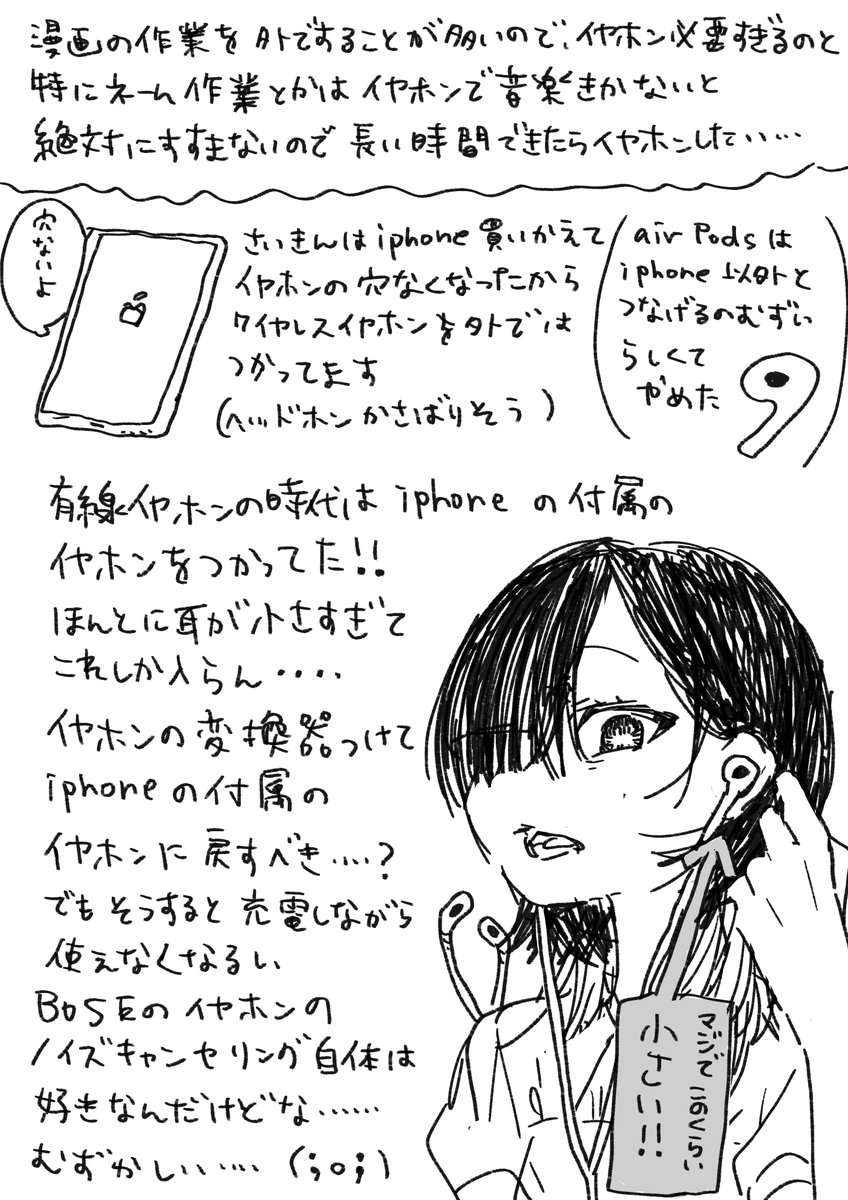 漫画の作業を外ですることが多いので、イヤホン必要すぎるのと
特にネーム作業とかはイヤホンで音楽きかないと
絶対にすすまないので長い時間できたらイヤホンしたい…
穴ないよ
さいきんはiphone買いかえて
イヤホンの穴なくなったから
ワイヤレスイヤホンを外では
つかってます
(ヘッドホンかさばりそう)
air Podsは
iphone以外と
つなげるのむずい
らしくて
やめた
有線イヤホンの時代はiphoneの付属の
イヤホンをつかってた!!
ほんとに耳が小さすぎて
これしか入らん....
イヤホンの変換器つけて
iphoneの付属の
イヤホンに戻すべき....?
でもそうすると充電しながら
使えなくなるい
BOSEのイヤホンの
ノイズキャンセリング自体は
好きなんだけどな……
むずかしい…… (;o;)
マジでこのくらい
小さい!!